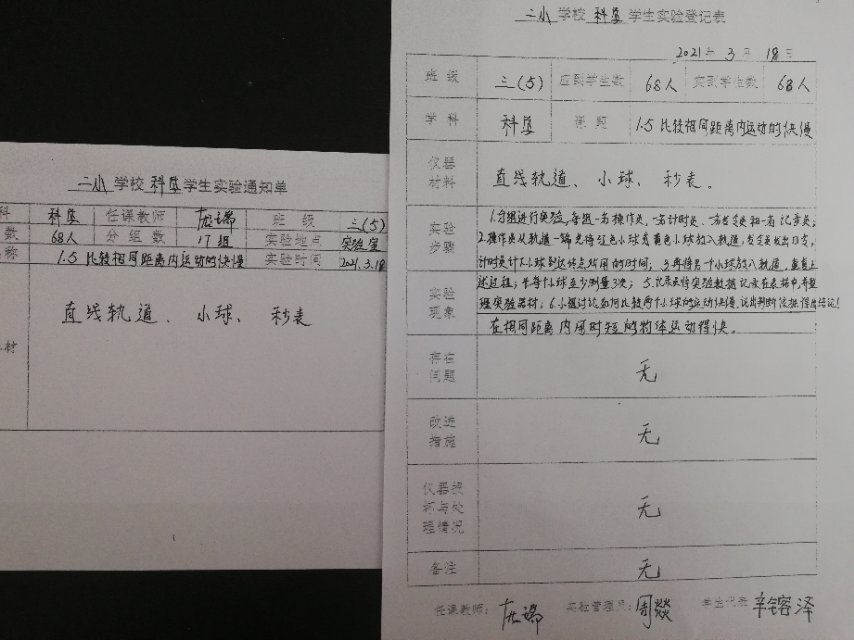 二小学校 科学 学生实验通知单
科 科学 任课教师 班级 三(5)
数 68人 分组数 17组 实验地点 实验室
名称 1.5 比较相同距离内运动的快慢 实验时间 2021.3.18
直线轨道、小球、秒表
材
二小 学校 科学 学生实验登记表
2021年 3月 18日
班级 三(5) 应到学生数 68人 实到学生数 68人
学科 科学 课题 1.5 比较相同距离内运动的快慢
仪器材料 直线轨道、小球、秒表。
实验步骤
1.分组进行实验,每组一名操作员,一名计时员、一名发令员和一名记录员;
2.操作员从轨道一端先将红色小球或黄色小球放入轨道,发令员发出口令,
计时员计下小球到达终点所用的时间;3.再将另一个小球放入轨道,重复上
述过程;4.每个小球至少测量3次;5.记录员将实验数据记录在表格中,并整
理实验器材;6.小组讨论如何比较两个小球的运动快慢,说出判断依据得出结论!
实验现象
在相同距离内用时短的物体运动得快。
存在问题 无
改进措施 无
仪器损坏与处理情况 无
备注 无
任课教师: 实验管理员:周燚 学生代表:辛镕泽